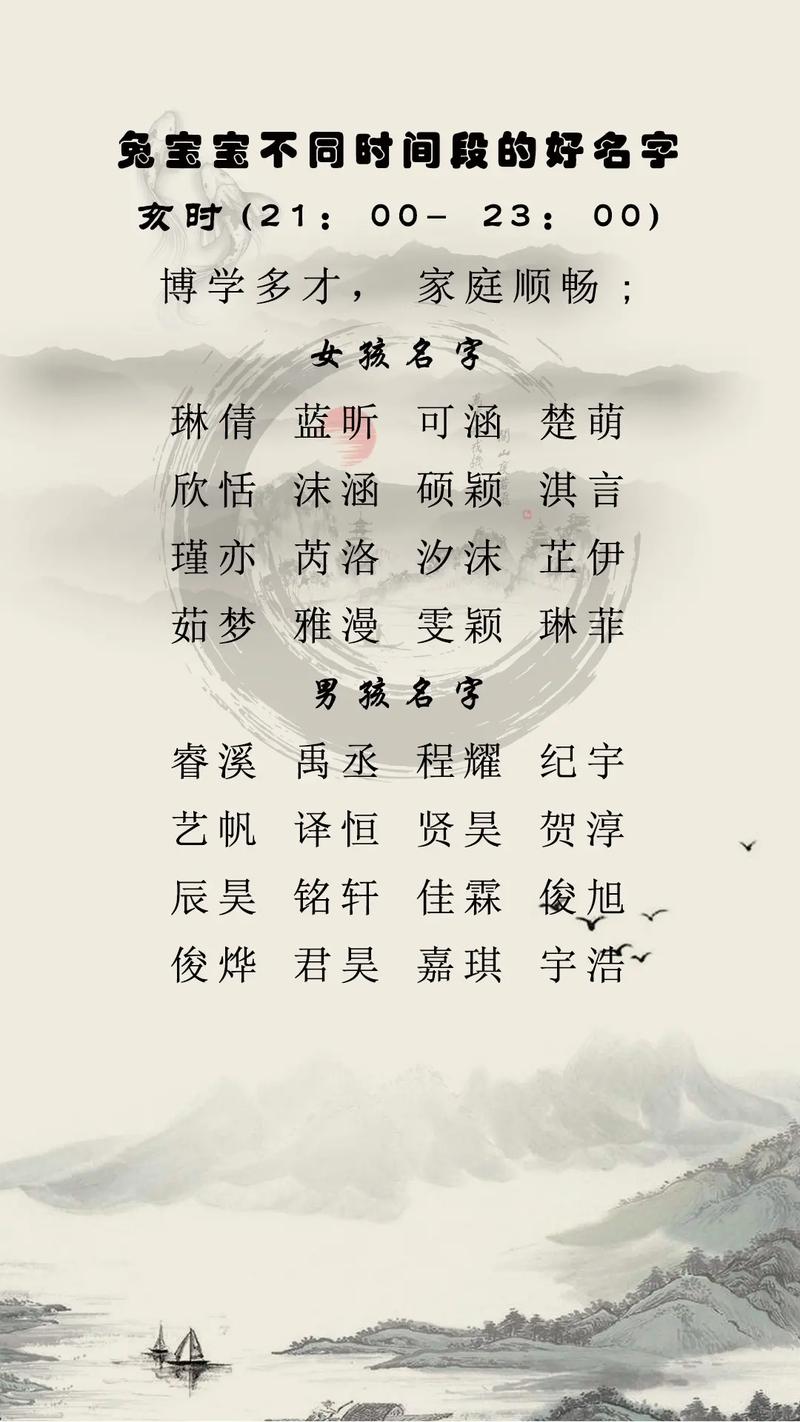 兔宝宝不同时间段的好名字
亥时(21：00- 23：00)
博学多才， 家庭顺畅；
女孩名字
琳倩 蓝昕 可涵 楚萌
欣恬 沫涵 硕颖 淇言
瑾亦 芮洛 汐沫 芷伊
茹梦 雅漫 雯颖 琳菲
男孩名字
睿溪 禹丞 程耀 纪宇
艺帆 译恒 贤昊 贺淳
辰昊 铭轩 佳霖 俊旭
俊烨 君昊 嘉琪 宇浩